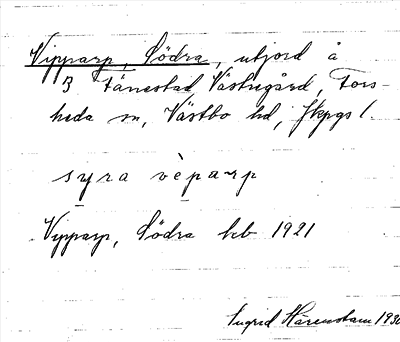 Vipparp, Södra, utjord å
3 Tånestad Västregård, Fors-
heda sn, Västbo hd, Jkpgs l.
syra vèparp
Vipparp, Södra kb 1921
Ingrid Härenstam 1930